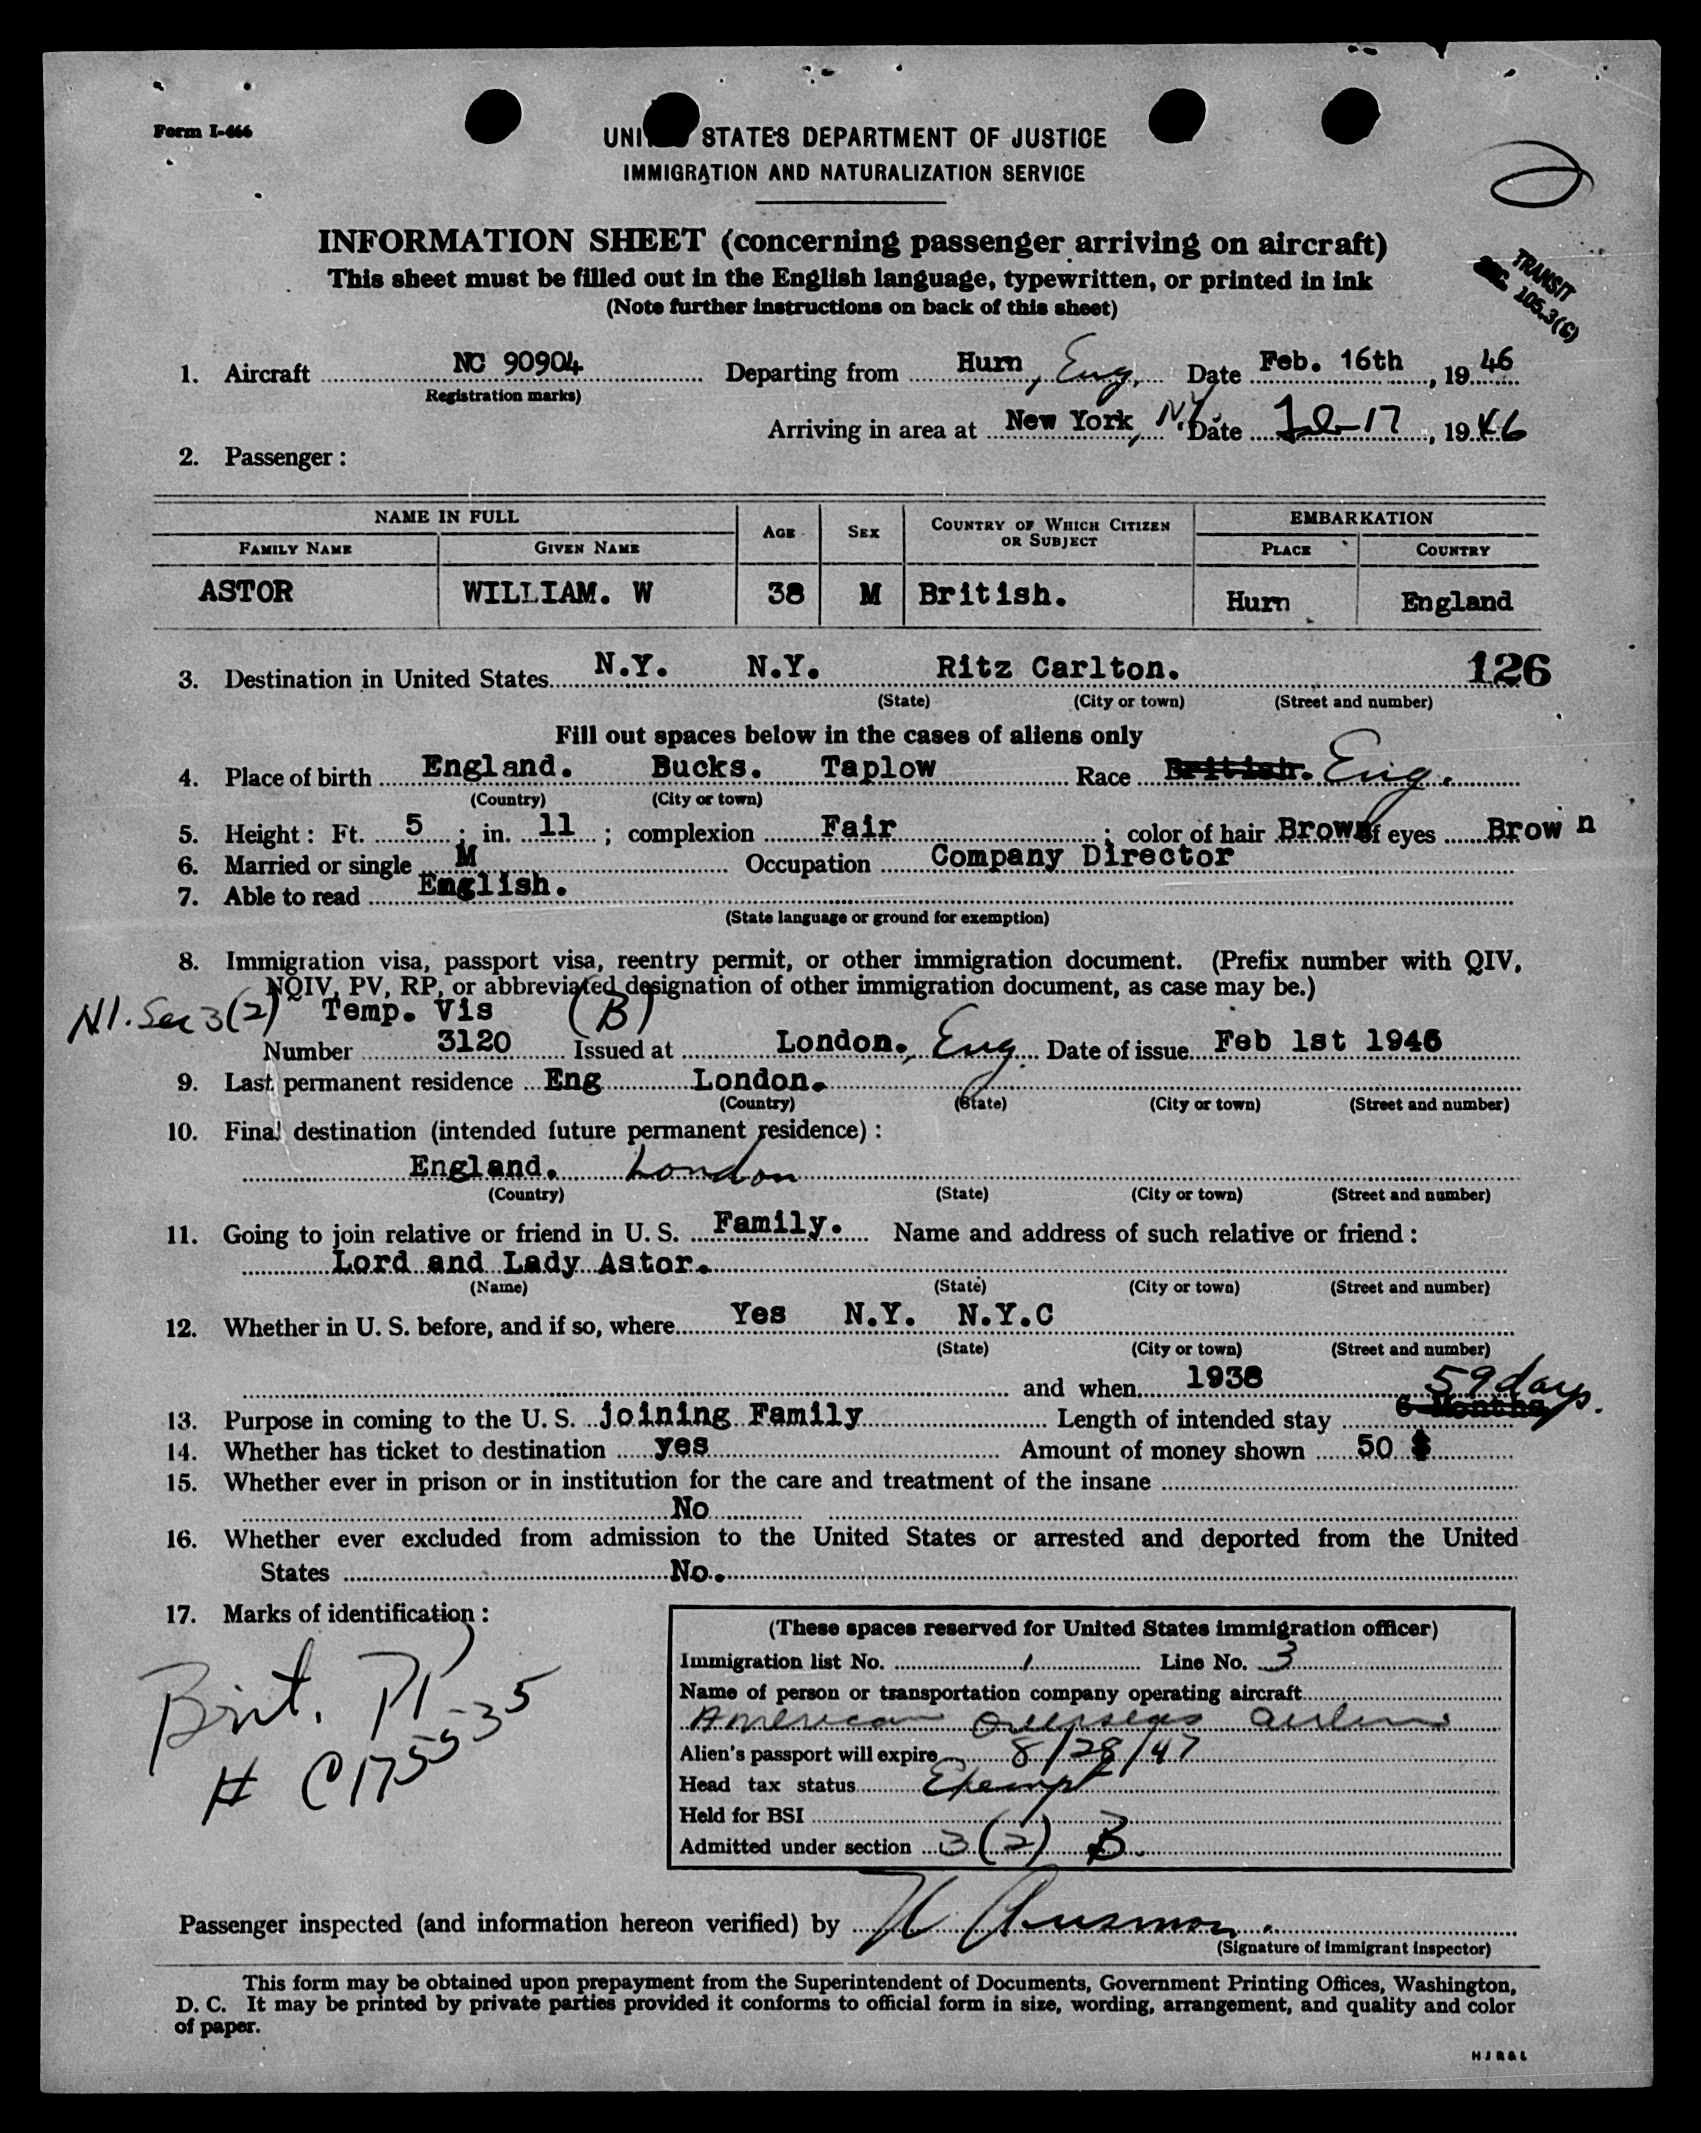 Form I-466
UNI STATES DEPARTMENT OF JUSTICE
IMMIGRATION AND NATURALIZATION SERVICE
INFORMATION SHEET (concerning passenger arriving on aircraft)
This sheet must be filled out in the English language, typewritten, or printed in ink
(Note further instructions on back of this sheet)
TRANSIT
SEC 105.3(G)
1. Aircraft NC 90904 Departing from Hurn, Eng. Date Feb. 16th, 1946
(Registration marks)
Arriving in area at New York, N.Y. Date Feb-17, 1946
2. Passenger:
NAME IN FULL AGE SEX COUNTRY OF WHICH CITIZEN OR SUBJECT EMBARKATION
FAMILY NAME GIVEN NAME PLACE COUNTRY
ASTOR WILLIAM. W 38 M British. Hurn England
3. Destination in United States N.Y. N.Y. Ritz Carlton. 126
(State) (City or town) (Street and number)
Fill out spaces below in the cases of aliens only
4. Place of birth England. Bucks. Taplow Race British. Eng.
(Country) (City or town)
5. Height: Ft. 5; in. 11; complexion Fair; color of hair Brown of eyes Brown
6. Married or single M Occupation Company Director
7. Able to read English.
(State language or ground for exemption)
8. Immigration visa, passport visa, reentry permit, or other immigration document. (Prefix number with QIV,
NQIV, PV, RP, or abbreviated designation of other immigration document, as case may be.)
N1. Sec 3(2) Temp. Vis (B)
Number 3120 Issued at London., Eng. Date of issue Feb 1st 1946
9. Last permanent residence Eng London.
(Country) (State) (City or town) (Street and number)
10. Final destination (intended future permanent residence):
England. London
(Country) (State) (City or town) (Street and number)
11. Going to join relative or friend in U. S. Family. Name and address of such relative or friend:
Lord and Lady Astor.
(Name) (State) (City or town) (Street and number)
12. Whether in U. S. before, and if so, where Yes N.Y. N.Y.C
(State) (City or town) (Street and number)
and when 1938 59 days.
13. Purpose in coming to the U. S. joining Family Length of intended stay 6 Months
14. Whether has ticket to destination yes Amount of money shown 50 $
15. Whether ever in prison or in institution for the care and treatment of the insane
No
16. Whether ever excluded from admission to the United States or arrested and deported from the United
States No.
17. Marks of identification:
Brit. PP
# C1755535
(These spaces reserved for United States immigration officer)
Immigration list No. 1 Line No. 3
Name of person or transportation company operating aircraft
American Overseas Airlines
Alien's passport will expire 8/28/47
Head tax status Exempt
Held for BSI
Admitted under section 3(2) B.
Passenger inspected (and information hereon verified) by
(Signature of immigrant inspector)
This form may be obtained upon prepayment from the Superintendent of Documents, Government Printing Offices, Washington,
D. C. It may be printed by private parties provided it conforms to official form in size, wording, arrangement, and quality and color
of paper.
HJR&L